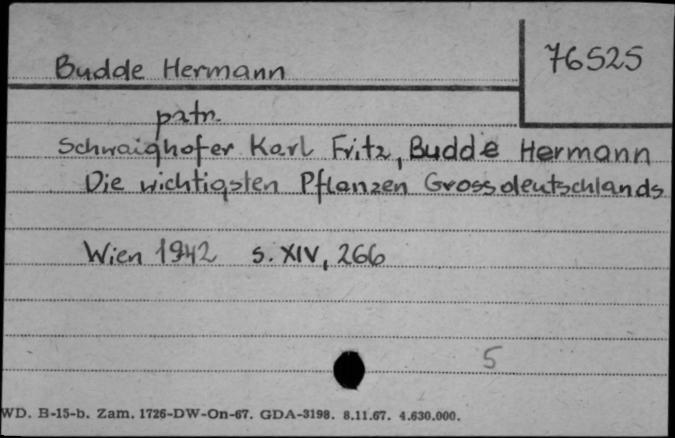 76525
Budde Hermann
patr.
Schwaighofer Karl Fritz, Budde Hermann
Die wichtigsten Pflanzen Grossdeutschlands
Wien 1942 s. XIV, 266
5
WD. B-15-b. Zam. 1726-DW-On-67. GDA-3198. 8.11.67. 4.630.000.